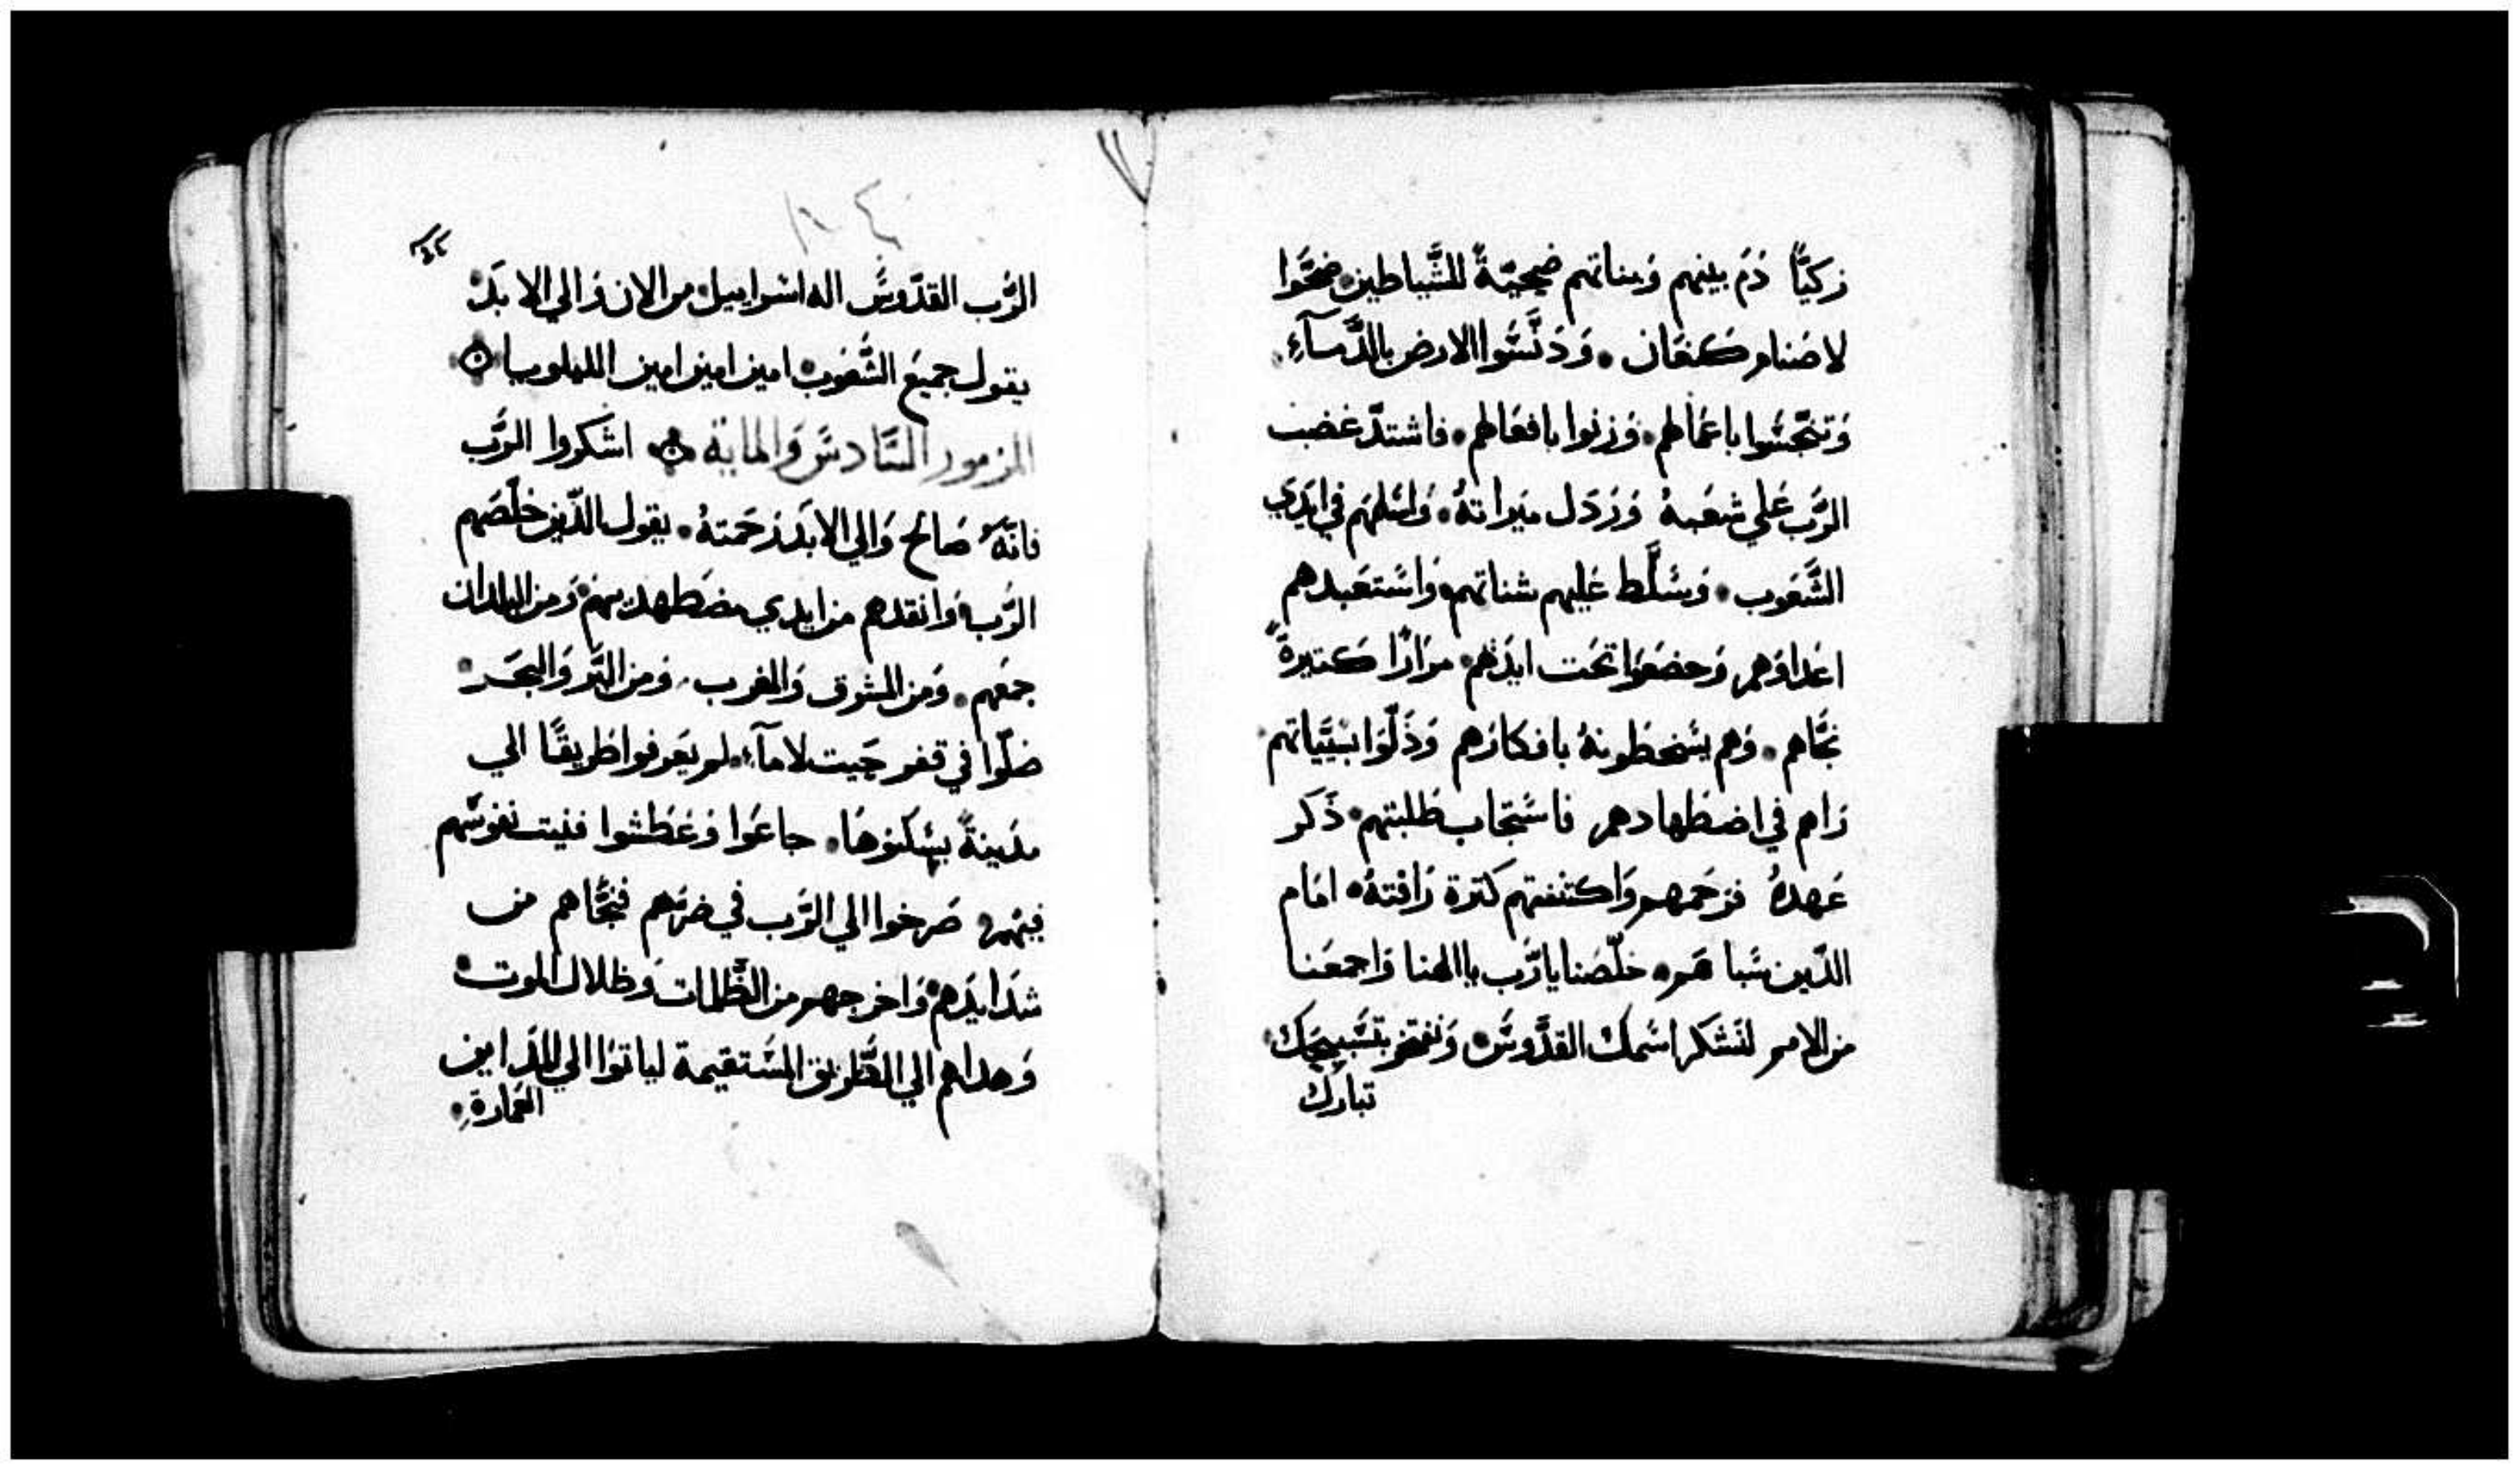 زكيًّا دَمَ بينهم وَبناتهم ضحيّةً للشَّياطين ضحَّوا
لاصَنام كنعَان . وَدَنَّسُوا الارض بالدَّمآءِ
وَتنجّسُوا باعمَالهم . وَزنوا بافعَالهم . فاشتدّ غضب
الرَّب عَلي شعَبهُ وَرَدَل ميراتهُ . وَاسَلمَهم في ايَدَي
الشَّعَوب . وَسَلَّط عَليهم شناتهم وَاستعَبدهم
اعَداوَهم وَخضعَوا تحَت ايدَهم مرَارًا كتيرةً
نجَّاهم . وَهم يسَخطونهُ بافكارَهم وَذَلّوَا بسَيَّياتهم
رَاهم في اضطهادهم فاسَتجَاب طَلبتهم . ذَكر
عَهدهُ فرَحَمهم وَاكتنفتهم كترة رَافتهُ . امَام
الدّين سَباهَم . خلّصَنا يارَّب ياالهنا وَاجمعَنا
من الامم لنَشكر اسَمك القدَّوسَ . وَنفتخر بتسَبيحَك
تبارك
الرَّب القدّوسَ اله اسَراييل من الان وَالي الابَدَ
يقول جميَع الشَّعَوب امين امين امين الليلويا
المزمور السَّادسَ وَالمايَة اشَكروا الرَّب
فانّهُ صَالح وَالي الابَدَ رَحَمتهُ . يقول الدّين خلّصَهم
الرَّب وَانقدهم من ايدي مضَطهديهم وَمن البلدان
جمعَهم . وَمن المشرق وَالمغرب . وَمن البَّر وَالبحَر
ضلّوا في قفر حَيت لا مآء . لم يعَرفوا طَريقًا الي
مدَينةً يسَكنوهَا . جاعَوا وَعَطشوا فنيت نفوسَهم
فيهم صَرخوا الي الرَّب في ضرّهم فنجَّاهم من
شدَايدَهم وَاخرجهم من الظَّلمات وَظلال الموت
وَهداهم الي الطَّريق المسَتقيمة لياتوَا الي المدَاين
العمَارة .